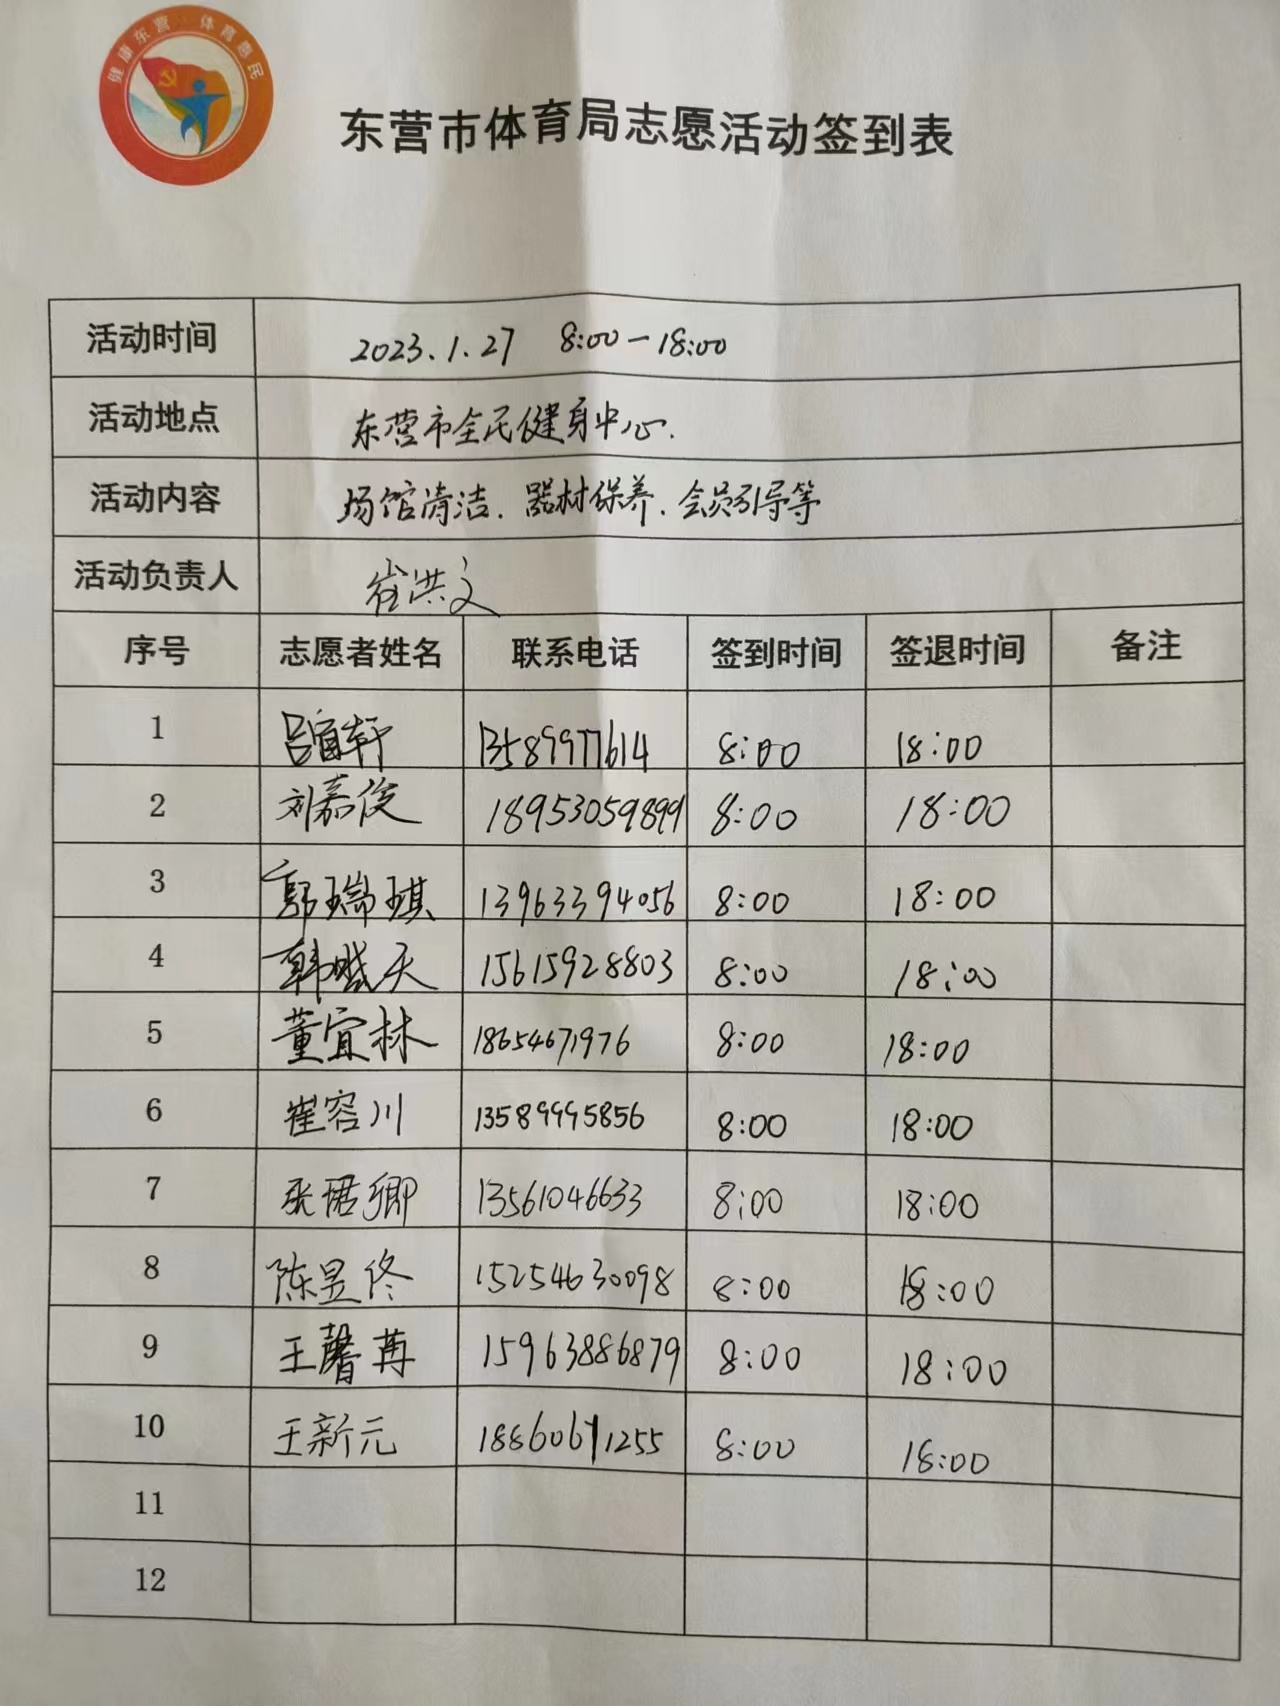 健康东营 体育惠民
东营市体育局志愿活动签到表
活动时间 2023.1.27 8:00-18:00
活动地点 东营市全民健身中心.
活动内容 场馆清洁、器材保养、会员引导等
活动负责人 崔洪文
序号 志愿者姓名 联系电话 签到时间 签退时间 备注
1 吕宜轩 13589977614 8:00 18:00
2 刘嘉俊 18953059899 8:00 18:00
3 郭瑞琪 13963394056 8:00 18:00
4 韩 天 15615928803 8:00 18:00
5 董宜林 18654671976 8:00 18:00
6 崔容川 13589995856 8:00 18:00
7 张珺卿 13561046633 8:00 18:00
8 陈昱佟 15254630098 8:00 18:00
9 王馨苒 15963886879 8:00 18:00
10 王新元 18860671255 8:00 18:00
11
12